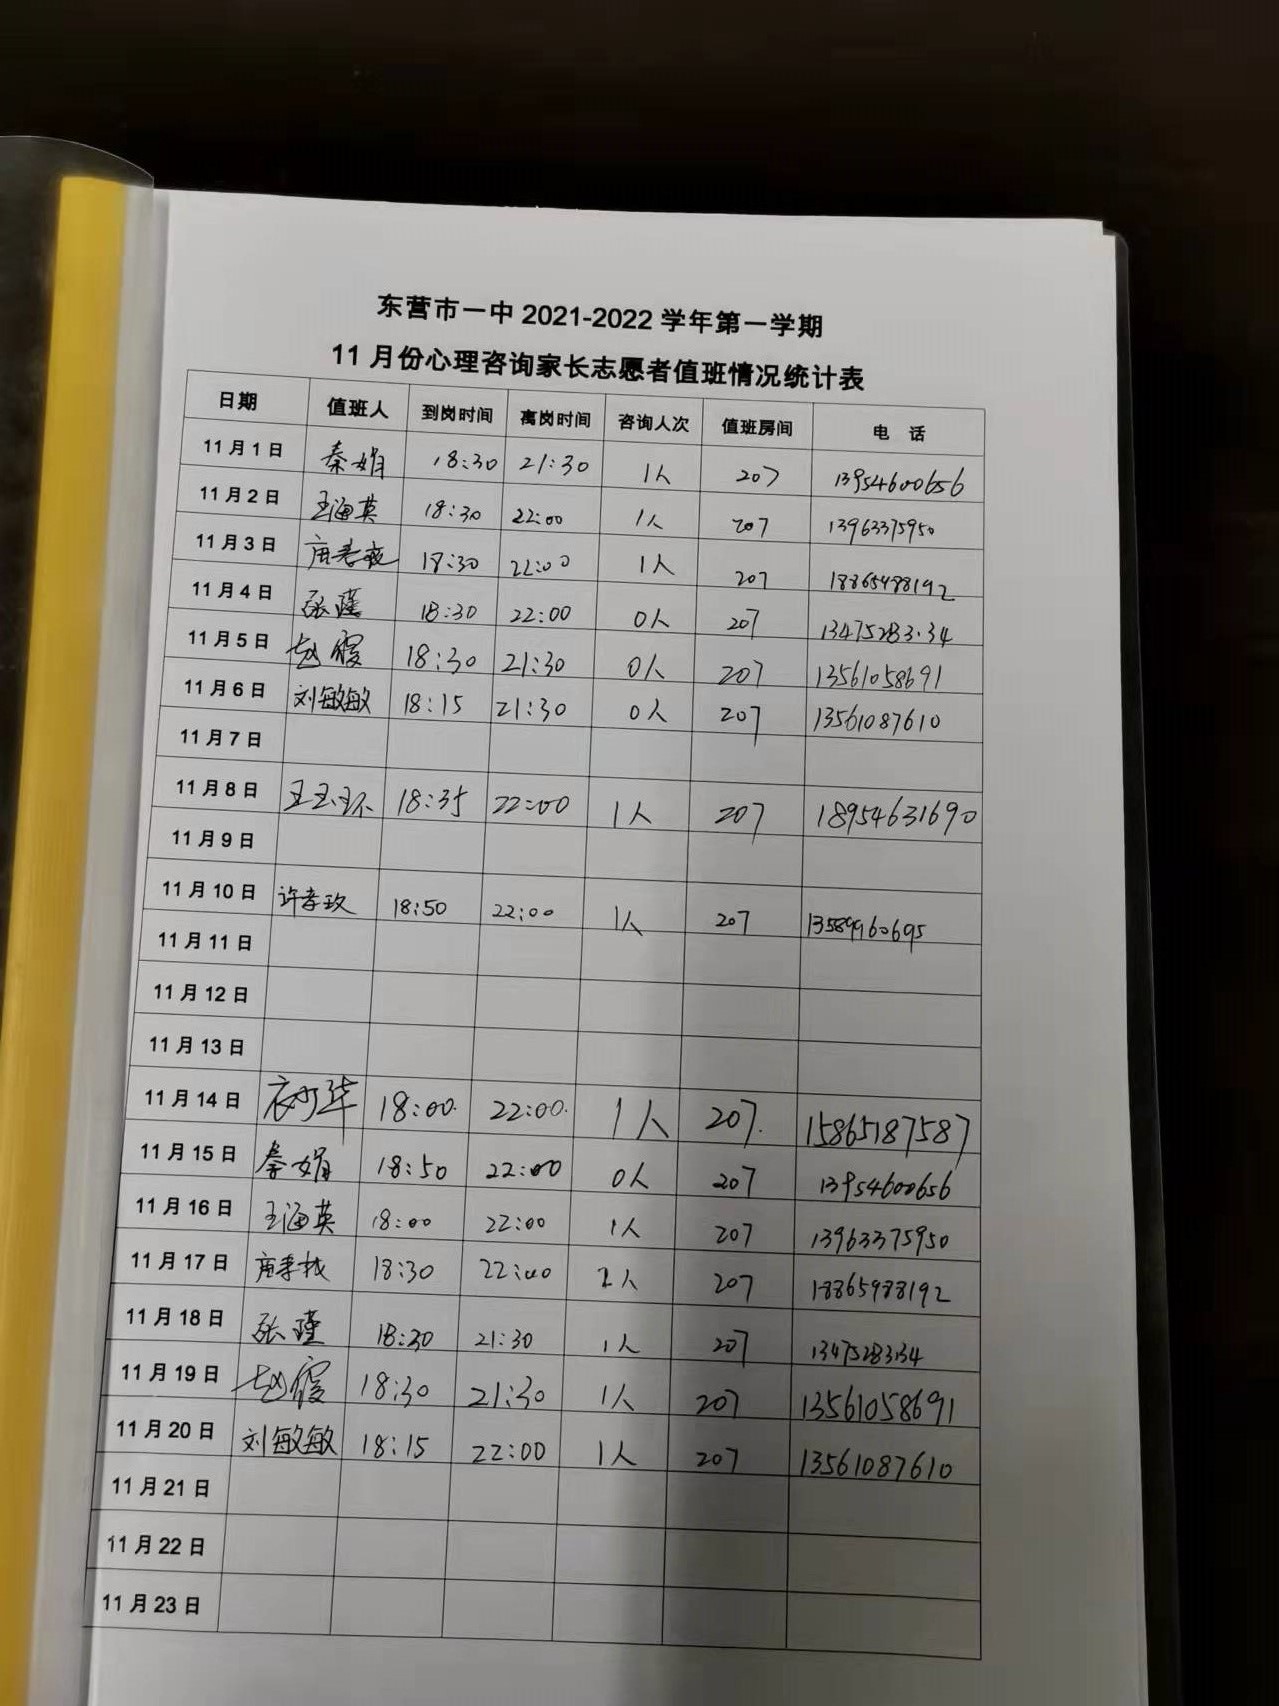 东营市一中 2021-2022 学年第一学期
11 月份心理咨询家长志愿者值班情况统计表
日期 值班人 到岗时间 离岗时间 咨询人次 值班房间 电 话
11 月 1 日 秦娟 18:30 21:30 1人 207 13954600656
11 月 2 日 王海英 18:30 22:00 1人 207 13963375950
11 月 3 日 18:30 22:00 1人 207 18865988192
11 月 4 日 张瑾 18:30 22:00 0人 207
11 月 5 日 赵霞 18:30 21:30 0人 207 13561058691
11 月 6 日 刘敏敏 18:15 21:30 0人 207 13561087610
11 月 7 日
11 月 8 日 王玉环 18:35 22:00 1人 207 18954631690
11 月 9 日
11 月 10 日 许孝玫 18:50 22:00 1人 207 13589960695
11 月 11 日
11 月 12 日
11 月 13 日
11 月 14 日 18:00. 22:00. 1人 207. 15865187587
11 月 15 日 秦娟 18:50 22:00 0人 207 13954600656
11 月 16 日 王海英 18:00 22:00 1人 207 13963375950
11 月 17 日 18:30 22:00 207 18865988192
11 月 18 日 张瑾 18:30 21:30 1人 207
11 月 19 日 赵霞 18:30 21:30 1人 207 13561058691
11 月 20 日 刘敏敏 18:15 22:00 1人 207 13561087610
11 月 21 日
11 月 22 日
11 月 23 日